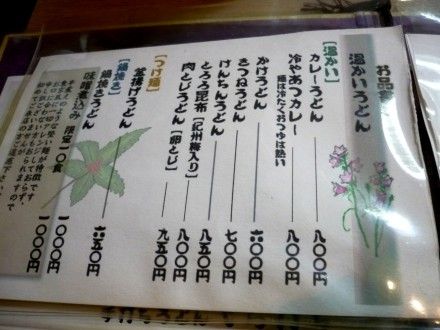 お品書
温かいうどん
【温かい】
カレーうどん 八〇〇円
冷やあつカレー 八〇〇円
麺は冷たくおつゆは熱い
かけうどん 六〇〇円
きつねうどん 七〇〇円
けんちんうどん 八五〇円
とろろ昆布【紀州梅入り】 八〇〇円
肉とじうどん【卵とじ】 九五〇円
【つけ麺】
釜揚げうどん 六五〇円
【鍋焼き】
鍋焼きうどん 一〇〇〇円
味噌煮込み 限定二〇食 一〇〇〇円